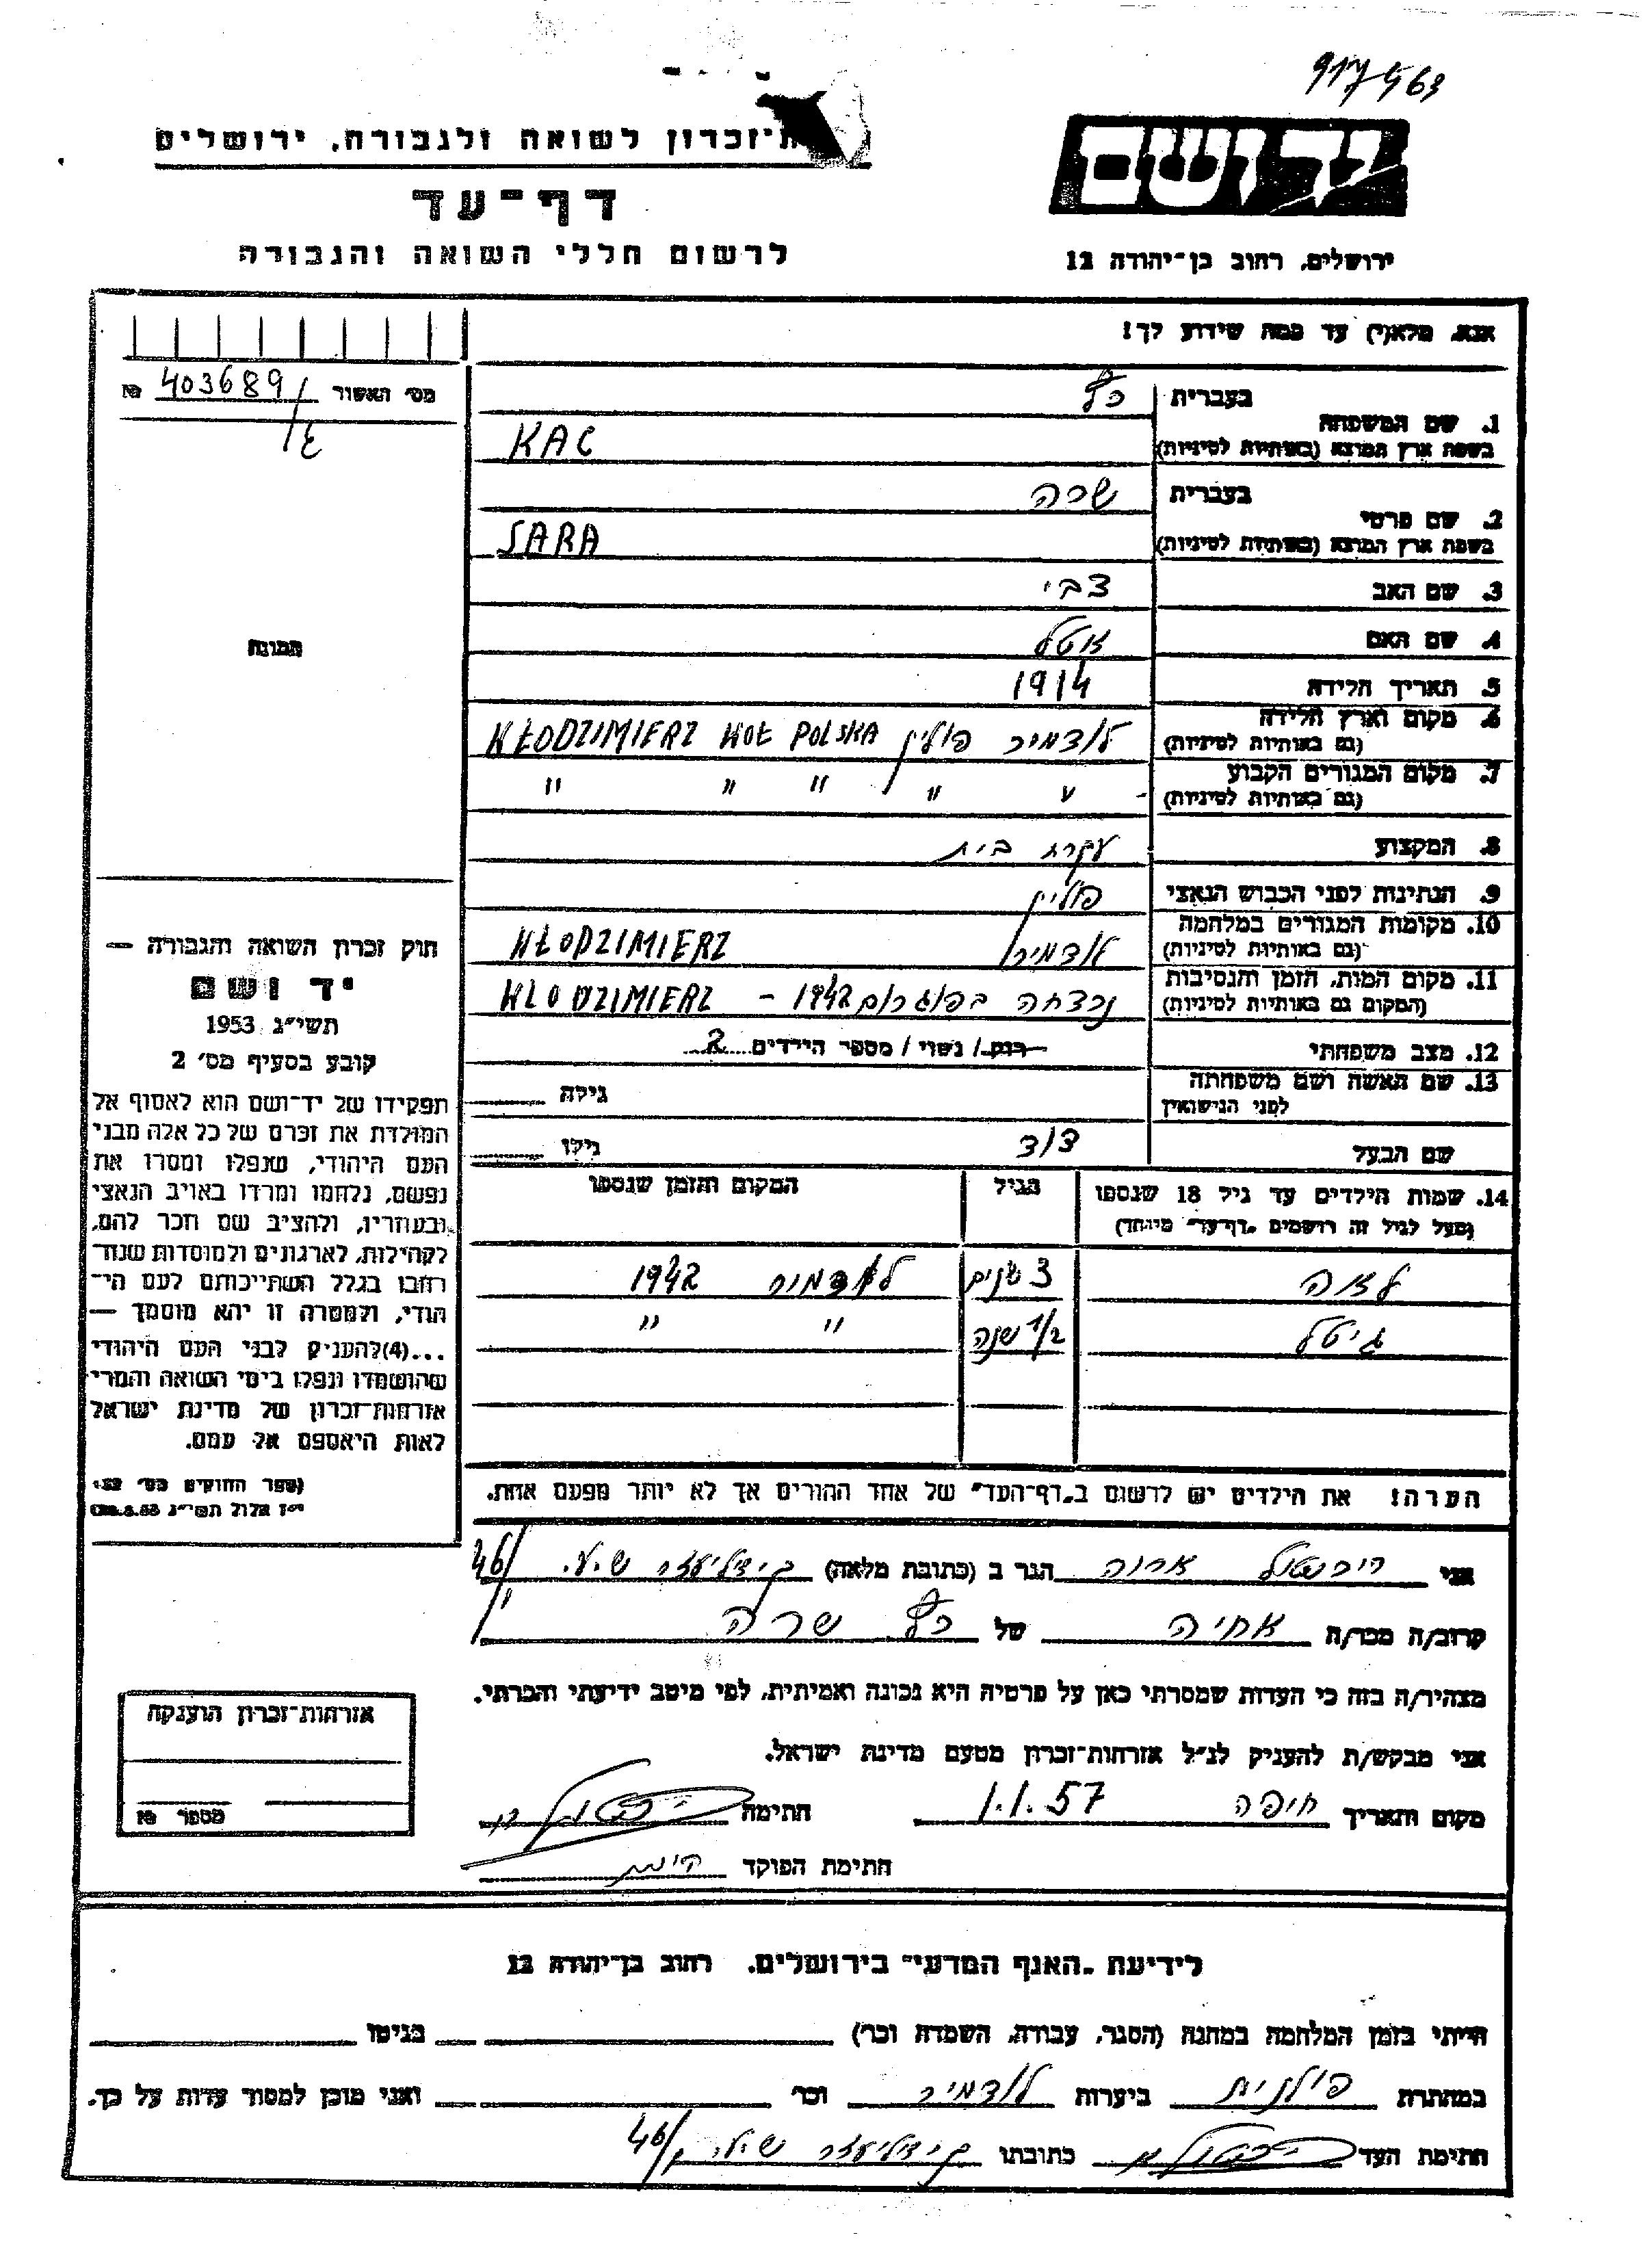 917463
יד ושם
ירושלים, רחוב בן־יהודה 12
לשואה ולגבורה, ירושלים
דף־עד
לרשום חללי השואה והגבורה
אנא, מלא(י) עד כמה שידוע לך!
מס׳ האשור 403689/ №
1. שם המשפחה
בעברית כץ
בשפת ארץ המוצא (באותיות לטיניות) KAC
2. שם פרטי
בעברית שרה
בשפת ארץ המוצא (באותיות לטיניות) SARA
3. שם האב צבי
4. שם האם אטל
5. תאריך הלידה 1914
6. מקום וארץ הלידה (גם באותיות לטיניות) לודמיר פולין WŁODZIMIERZ WOŁ POLSKA
7. מקום המגורים הקבוע (גם באותיות לטיניות) " " " " "
8. המקצוע עקרת בית
9. הנתינות לפני הכבוש הנאצי פולין
10. מקומות המגורים במלחמה (גם באותיות לטיניות) לודמיר WŁODZIMIERZ
11. מקום המות, הזמן והנסיבות (המקום גם באותיות לטיניות) נרצחה בפוגרום 1942 - WLODZIMIERZ
12. מצב משפחתי רווק / נשוי / מספר הילדים 2
13. שם האשה ושם משפחתה לפני הנישואין גילה
שם הבעל דוד גילו
14. שמות הילדים עד גיל 18 שנספו הגיל המקום והזמן שנספו
(מעל לגיל זה רושמים „דף־עד" מיוחד)
3 שנים לודמיר 1942
גיטל 1/2 שנה " "
הערה! את הילדים יש לרשום ב„דף־העד" של אחד ההורים אך לא יותר מפעם אחת.
תמונה
חוק זכרון השואה והגבורה —
יד ושם
תשי״ג 1953
קובע בסעיף מס׳ 2
תפקידו של יד־ושם הוא לאסוף אל
המולדת את זכרם של כל אלה מבני
העם היהודי, שנפלו ומסרו את
נפשם, נלחמו ומרדו באויב הנאצי
ובעוזריו, ולהציב שם וזכר להם,
לקהילות, לארגונים ולמוסדות שנח־
רבו בגלל השתייכותם לעם הי־
הודי, ולמטרה זו יהא מוסמך —
...(4)להעניק לבני העם היהודי
שהושמדו ונפלו בימי השואה והמרי
אזרחות־זכרון של מדינת ישראל
לאות היאספם אל עמם.
(ספר החוקים מס׳ 132,
י״ז אלול תשי״ג 28.8.53)
אני הגר ב (כתובת מלאה) 46/
קרוב/ה מכר/ה אחיה של כץ שרה
מצהיר/ה בזה כי העדות שמסרתי כאן על פרטיה היא נכונה ואמיתית, לפי מיטב ידיעתי והכרתי.
אני מבקש/ת להעניק לנ״ל אזרחות־זכרון מטעם מדינת ישראל.
מקום ותאריך חיפה 1.1.57 חתימה
חתימת הפוקד
אזרחות־זכרון הוענקה
מספר №
לידיעת „האגף המדעי" בירושלים. רחוב בן־יהודה 12
הייתי בזמן המלחמה במחנה (הסגר, עבודה, השמדה וכו׳) בגיטו
במחתרת ביערות לודמיר וכו׳ ואני מוכן למסור עדות על כך.
חתימת העד כתובתו 46/